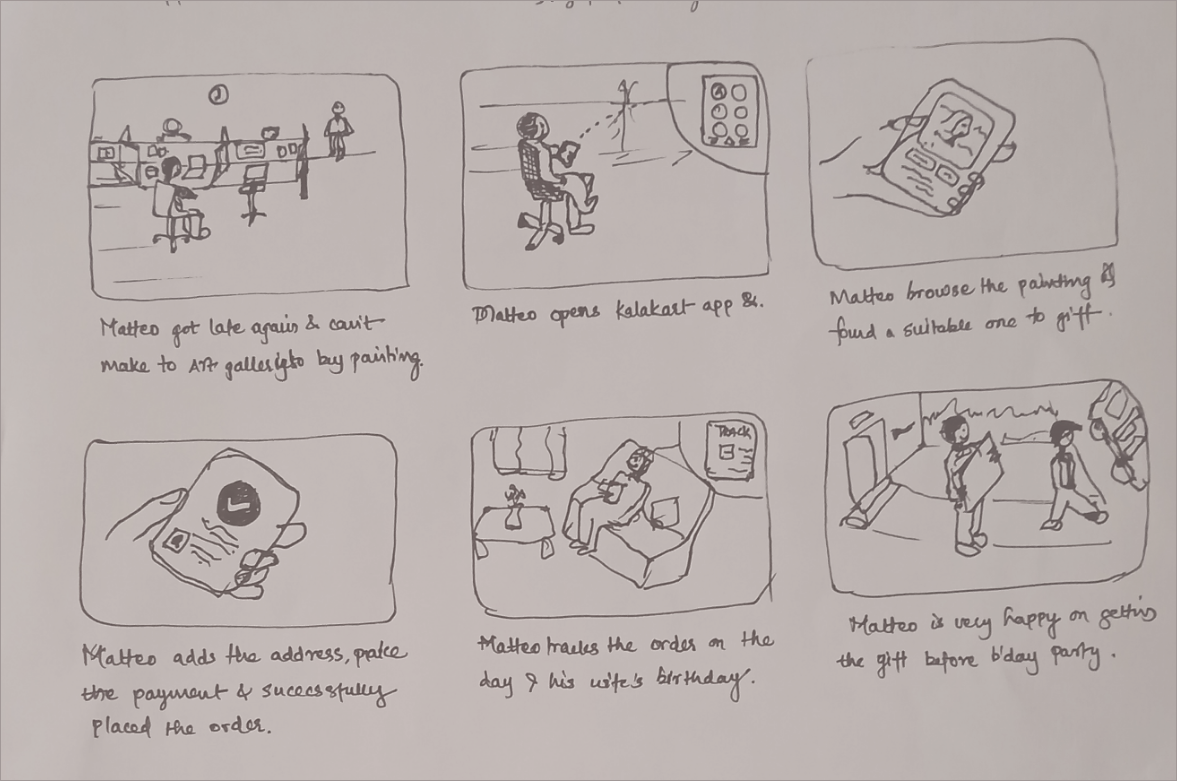 Matteo got late again & can't
make to Art gallery to buy painting.
Matteo opens Kalakart app &.
Matteo browse the painting &
found a suitable one to gift.
Matteo adds the address, make
the payment & successfully
placed the order.
TRACK
Matteo tracks the order on the
day of his wife's birthday.
Matteo is very happy on getting
the gift before b'day party.